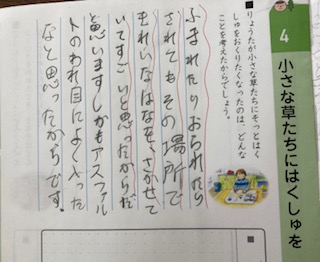 4
小さな草たちにはくしゅを
■りょうたが小さな草たちにそっとはく
しゅをおくりたくなったのは、どんな
ことを考えたからでしょう。
ふまれたりおられたら
されてもその場所で
きれいなはなをさかせて
いてすごいと思ったからだ
と思いますしかもアスファル
トのわれ目によく入った
なと思ったからです。